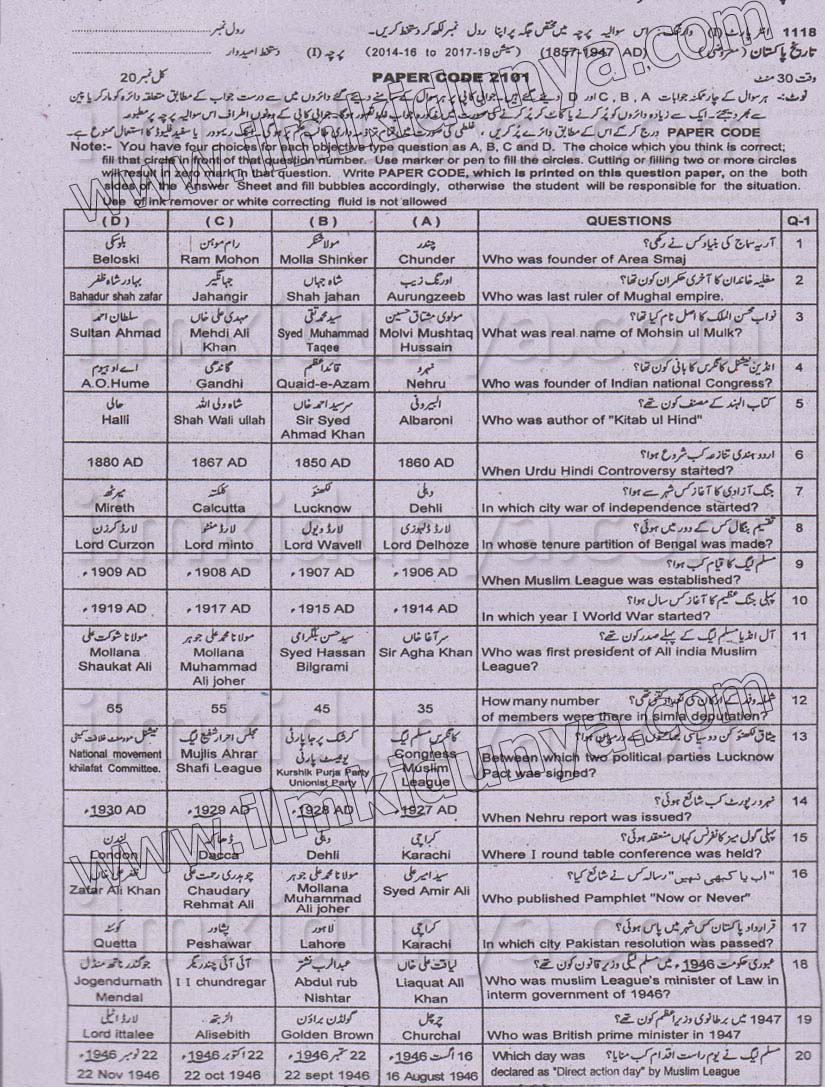 1118 انٹر پارٹ (I) وارننگ:۔ اس سوالیہ پرچہ میں مختص جگہ پر اپنا رول نمبر لکھ کر دستخط کریں۔ رول نمبر
تاریخ پاکستان (معروضی) (1857-1947 AD) (سیشن 2014-16 to 2017-19) پرچہ (I) دستخط امیدوار
وقت 30 منٹ PAPER CODE 2101 کل نمبر 20
نوٹ:۔ ہر سوال کے چار ممکنہ جوابات A ، B ، C اور D دیئے گئے ہیں۔ جوابی کاپی پر ہر سوال کے سامنے دیئے گئے دائروں میں سے درست جواب کے مطابق متعلقہ دائرہ کو مارکر یا پین
سے بھر دیجئے۔ ایک سے زیادہ دائروں کو پُر کرنے یا کاٹ کر پُر کرنے کی صورت میں مذکورہ جواب غلط تصور ہوگا۔ جوابی کاپی کے دونوں اطراف اس سوالیہ پرچہ پر مطبوعہ
PAPER CODE درج کر کے اس کے مطابق دائرے پُر کریں، غلطی کی صورت میں تمام تر ذمہ داری طالب علم پر ہوگی۔ انک ریموور یا سفید فلیوڈ کا استعمال ممنوع ہے۔
Note:- You have four choices for each objective type question as A, B, C and D. The choice which you think is correct;
fill that circle in front of that question number. Use marker or pen to fill the circles. Cutting or filling two or more circles
will result in zero mark in that question. Write PAPER CODE, which is printed on this question paper, on the both
sides of the Answer Sheet and fill bubbles accordingly, otherwise the student will be responsible for the situation.
Use of ink remover or white correcting fluid is not allowed
( D ) ( C ) ( B ) ( A ) QUESTIONS Q-1
بلوسکی رام موہن مولا شنکر چندر آریہ سماج کی بنیاد کس نے رکھی؟ 1
Beloski Ram Mohon Molla Shinker Chunder Who was founder of Area Smaj
بہادر شاہ ظفر جہانگیر شاہ جہاں اورنگ زیب مغلیہ خاندان کا آخری حکمران کون تھا؟ 2
Bahadur shah zafar Jahangir Shah jahan Aurungzeeb Who was last ruler of Mughal empire.
سلطان احمد مہدی علی خاں سید محمد تقی مولوی مشتاق حسین نواب محسن الملک کا اصل نام کیا تھا؟ 3
Sultan Ahmad Mehdi Ali Syed Muhammad Molvi Mushtaq What was real name of Mohsin ul Mulk?
Khan Taqee Hussain
اے او ہیوم گاندھی قائداعظم نہرو انڈین نیشنل کانگرس کا بانی کون تھا؟ 4
A.O.Hume Gandhi Quaid-e-Azam Nehru Who was founder of Indian national Congress?
حالی شاہ ولی اللہ سر سید احمد خاں البیرونی کتاب الہند کے مصنف کون تھے؟ 5
Halli Shah Wali ullah Sir Syed Albaroni Who was author of "Kitab ul Hind"
Ahmad Khan
اردو ہندی تنازعہ کب شروع ہوا؟ 6
1880 AD 1867 AD 1850 AD 1860 AD When Urdu Hindi Controversy started?
میرٹھ کلکتہ لکھنؤ دہلی جنگ آزادی کا آغاز کس شہر سے ہوا؟ 7
Mireth Calcutta Lucknow Dehli In which city war of independence started?
لارڈ کرزن لارڈ منٹو لارڈ ویول لارڈ ڈلہوزی تقسیم بنگال کس کے دور میں ہوئی؟ 8
Lord Curzon Lord minto Lord Wavell Lord Delhoze In whose tenure partition of Bengal was made?
مسلم لیگ کا قیام کب ہوا؟ 9
1909 AD ء 1908 AD ء 1907 AD ء 1906 AD ء When Muslim League was established?
پہلی جنگ عظیم کا آغاز کس سال ہوا؟ 10
1919 AD ء 1917 AD ء 1915 AD ء 1914 AD ء In which year I World War started?
مولانا شوکت علی مولانا محمد علی جوہر سید حسن بلگرامی سر آغا خاں آل انڈیا مسلم لیگ کے پہلے صدر کون تھے؟ 11
Mollana Mollana Syed Hassan Sir Agha Khan Who was first president of All india Muslim
Shaukat Ali Muhammad Bilgrami League?
Ali joher
65 55 45 35 How many number شملہ وفد کے ارکان کی تعداد کتنی تھی؟ 12
of members were there in simla deputation?
نیشنل موومنٹ خلافت کمیٹی مجلس احرار شفیع لیگ کرشک پرجا پارٹی یونینسٹ پارٹی کانگرس مسلم لیگ میثاق لکھنؤ کن دو سیاسی جماعتوں کے درمیان ہوا؟ 13
National movement Mujlis Ahrar Kurshik Purja Party Congress Between which two political parties Lucknow
khilafat Committee. Shafi League Unionist Party Muslim Pact was signed?
League
نہرو رپورٹ کب شائع ہوئی؟ 14
1930 AD ء 1929 AD ء 1928 AD ء 1927 AD ء When Nehru report was issued?
لندن ڈھاکہ دہلی کراچی پہلی گول میز کانفرنس کہاں منعقد ہوئی؟ 15
London Dacca Dehli Karachi Where I round table conference was held?
ظفر علی خاں چوہدری رحمت علی مولانا محمد علی جوہر سید امیر علی "اب یا کبھی نہیں" رسالہ کس نے شائع کیا؟ 16
Zafar Ali Khan Chaudary Mollana Syed Amir Ali Who published Pamphlet "Now or Never"
Rehmat Ali Muhammad
Ali joher
کوئٹہ پشاور لاہور کراچی قرارداد پاکستان کس شہر میں پاس ہوئی؟ 17
Quetta Peshawar Lahore Karachi In which city Pakistan resolution was passed?
جوگندر ناتھ منڈل آئی آئی چندریگر عبدالرب نشتر لیاقت علی خاں عبوری حکومت 1946ء میں مسلم لیگی وزیر قانون کون تھے؟ 18
Jogendurnath I I chundregar Abdul rub Liaquat Ali Who was muslim League's minister of Law in
Mendal Nishtar Khan interm government of 1946?
لارڈ اٹیلی الزبتھ گولڈن براؤن چرچل 1947 میں برطانوی وزیراعظم کون تھے؟ 19
Lord ittalee Alisebith Golden Brown Churchal Who was British prime minister in 1947
22 نومبر 1946ء 22 اکتوبر 1946ء 22 ستمبر 1946ء 16 اگست 1946ء Which day was مسلم لیگ نے یوم راست اقدام کب منایا؟ 20
22 Nov 1946 22 oct 1946 22 sept 1946 16 August 1946 declared as "Direct action day" by Muslim League
www.ilmkidunya.com
www.ilmkidunya.com
ilmkidunya.com
ilmkidunya.com
ilmkidunya.com
ilmkidunya.com